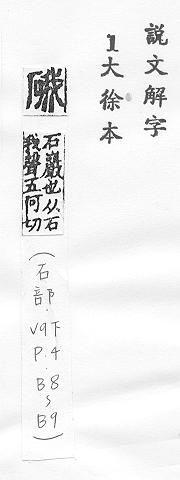 說文解字
1大徐本
硪
石巖也从石
我聲五何切
(石部.V9下P.4.B8~B9)